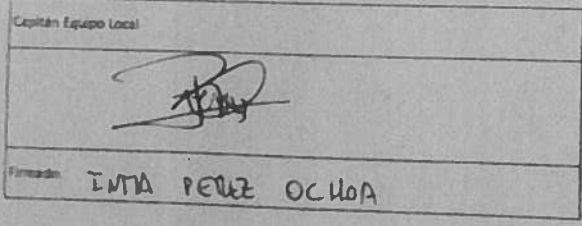 Capitán Equipo Local
Firmado:
INTIA PEREZ OCHOA